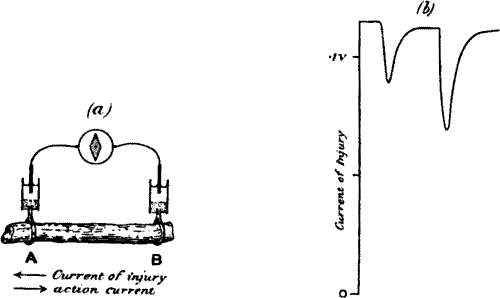 (a)
A B
Current of injury
action current
(b)
·1V
Current of Injury
0